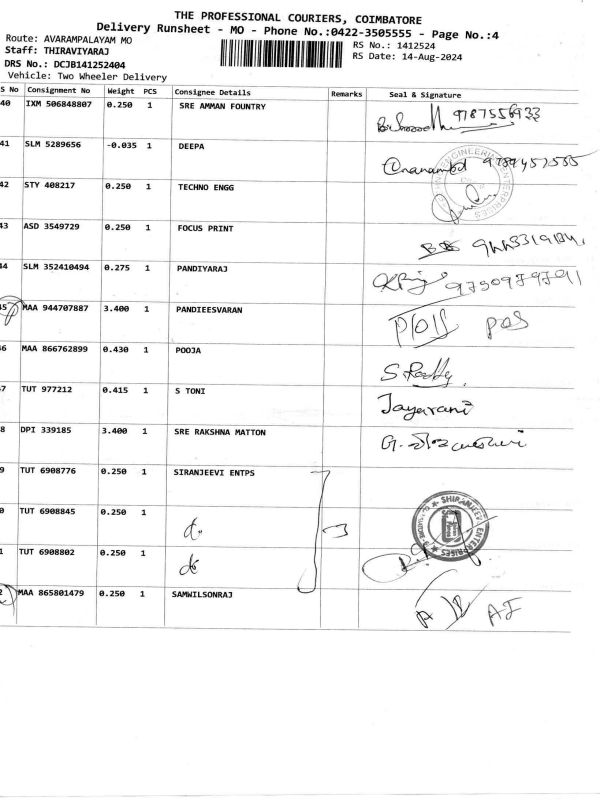 THE PROFESSIONAL COURIERS, COIMBATORE
Delivery Runsheet - MO - Phone No.:0422-3505555 - Page No.:4
Route: AVARAMPALAYAM MO
RS No.: 1412524
Staff: THIRAVIYARAJ
RS Date: 14-Aug-2024
DRS No.: DCJB141252404
Vehicle: Two Wheeler Delivery
S No Consignment No Weight PCS Consignee Details Remarks Seal & Signature
40 IXM 506848807 0.250 1 SRE AMMAN FOUNTRY
41 SLM 5289656 -0.035 1 DEEPA
42 STY 408217 0.250 1 TECHNO ENGG
43 ASD 3549729 0.250 1 FOCUS PRINT
44 SLM 352410494 0.275 1 PANDIYARAJ
45 MAA 944707887 3.400 1 PANDIEESVARAN
46 MAA 866762899 0.430 1 POOJA
47 TUT 977212 0.415 1 S TONI Jayarani
8 DPI 339185 3.400 1 SRE RAKSHNA MATTON
9 TUT 6908776 0.250 1 SIRANJEEVI ENTPS
0 TUT 6908845 0.250 1 do
1 TUT 6908802 0.250 1 do
SHIRANJEEVI ENTERPRISES
2 MAA 865801479 0.250 1 SAMWILSONRAJ